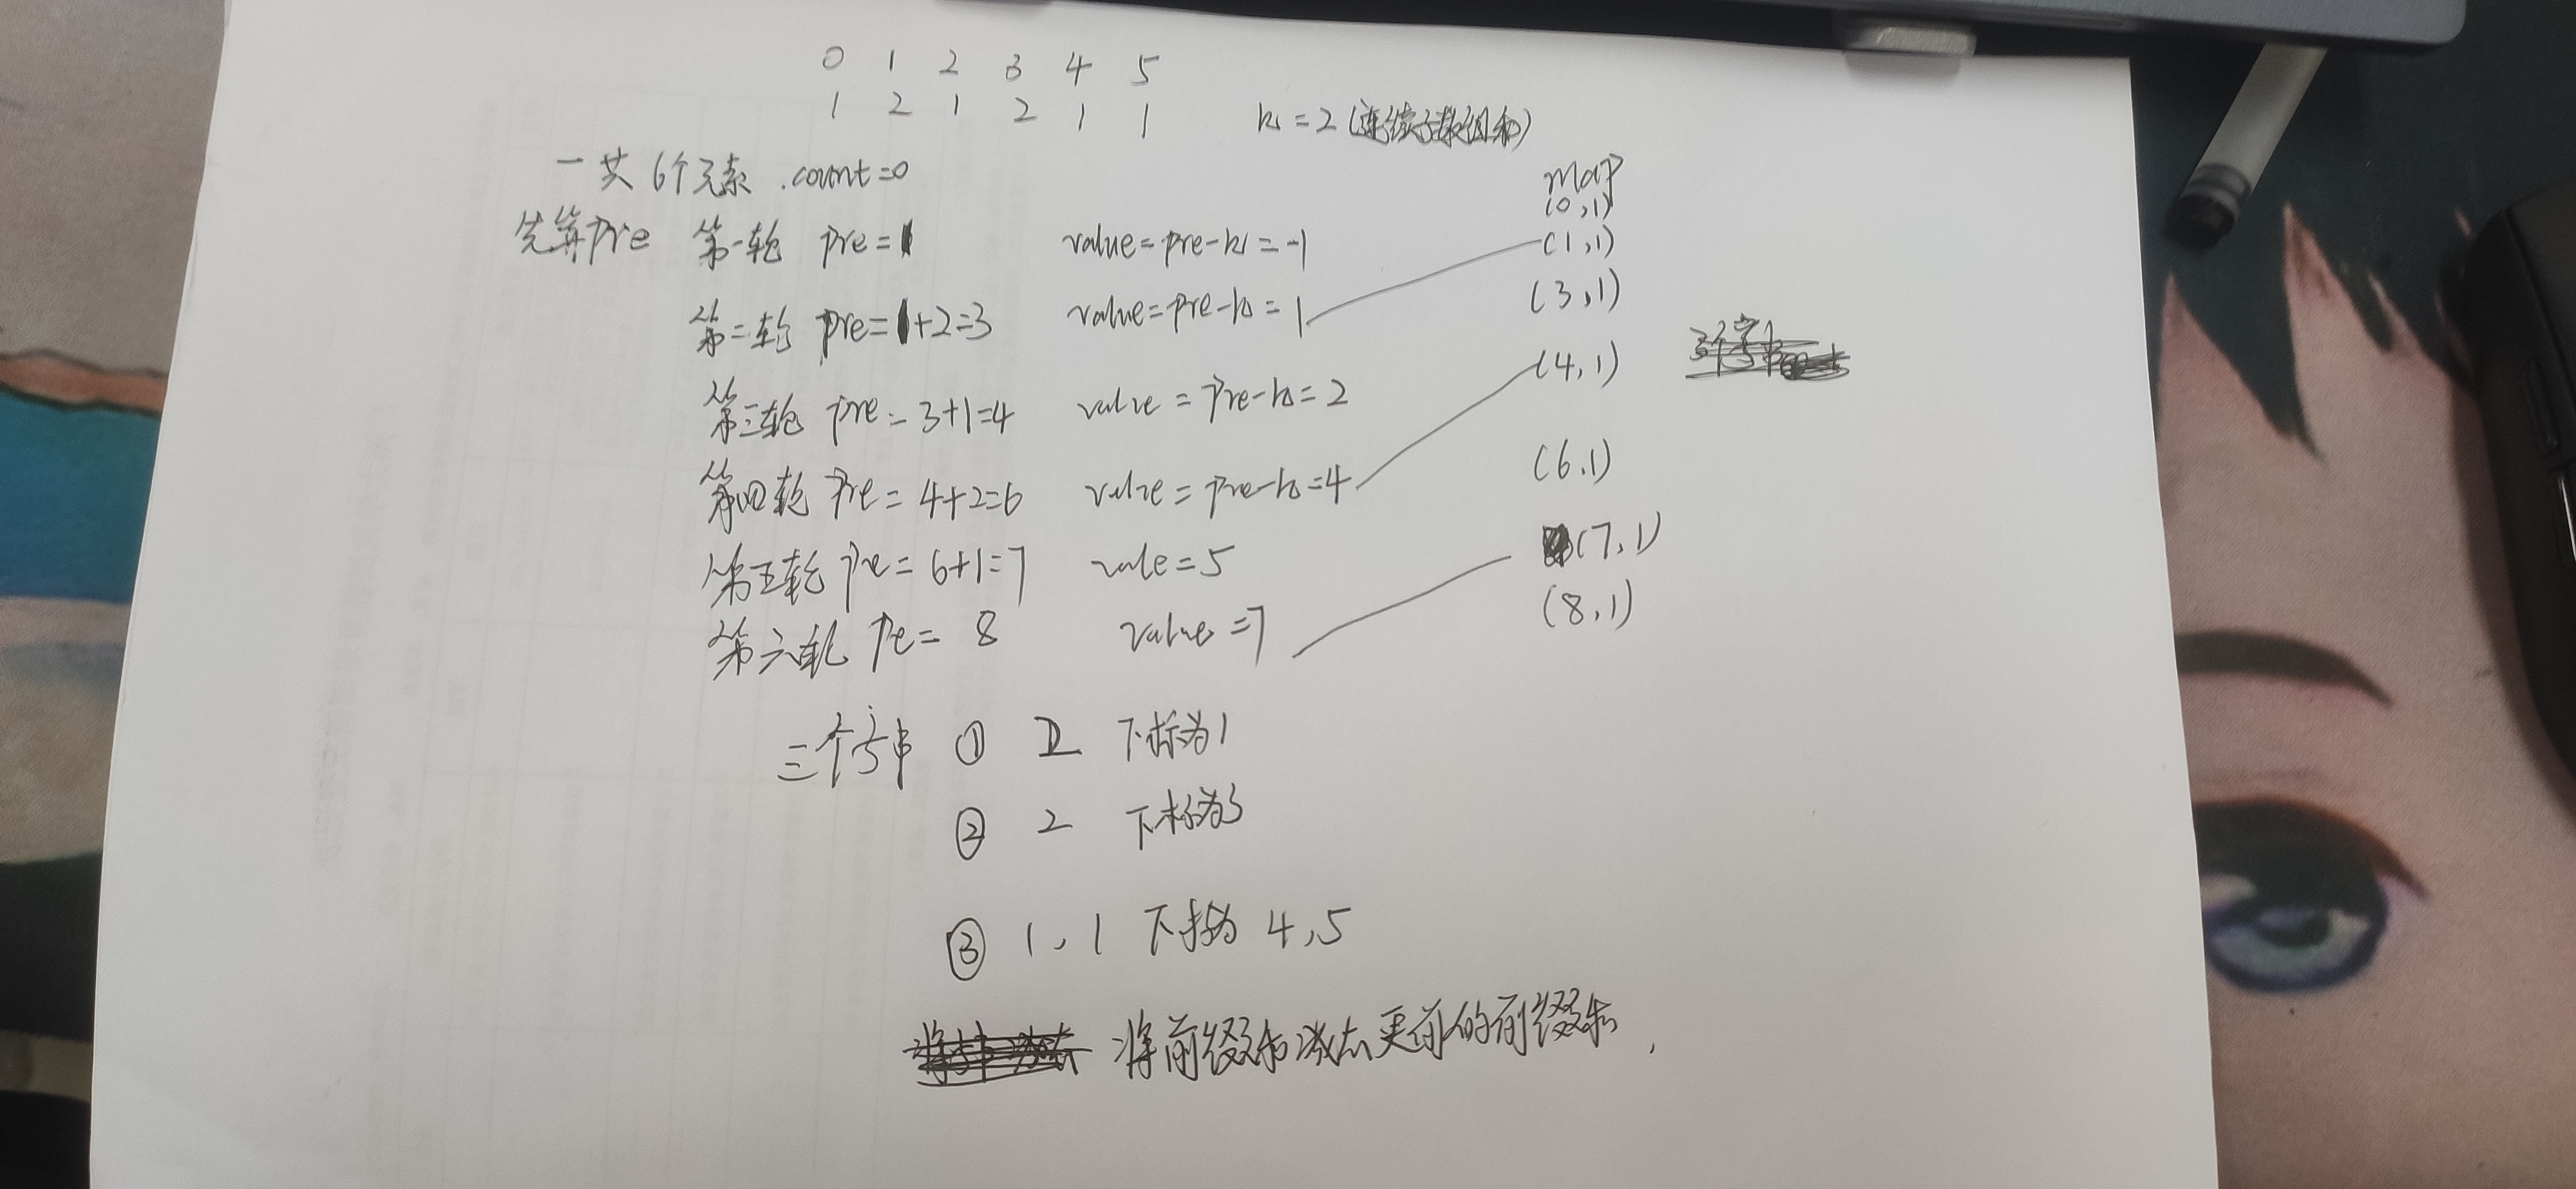 0 1 2 3 4 5
1 2 1 2 1 1 k=2(连续子数组和)
一共6个元素.count=0
map
(0,1)
先算pre 第一轮 pre=1 value=pre-k=-1 (1,1)
第二轮 pre=1+2=3 value=pre-k=1 (3,1)
第三轮 pre=3+1=4 value=pre-k=2 (4,1)
第四轮 pre=4+2=6 value=pre-k=4 (6,1)
第五轮 pre=6+1=7 vale=5 (7,1)
第六轮 pe=8 value=7 (8,1)
三个字串 ① 2 下标为1
② 2 下标为3
③ 1,1 下标为 4,5
将前缀和减去更前的前缀和,